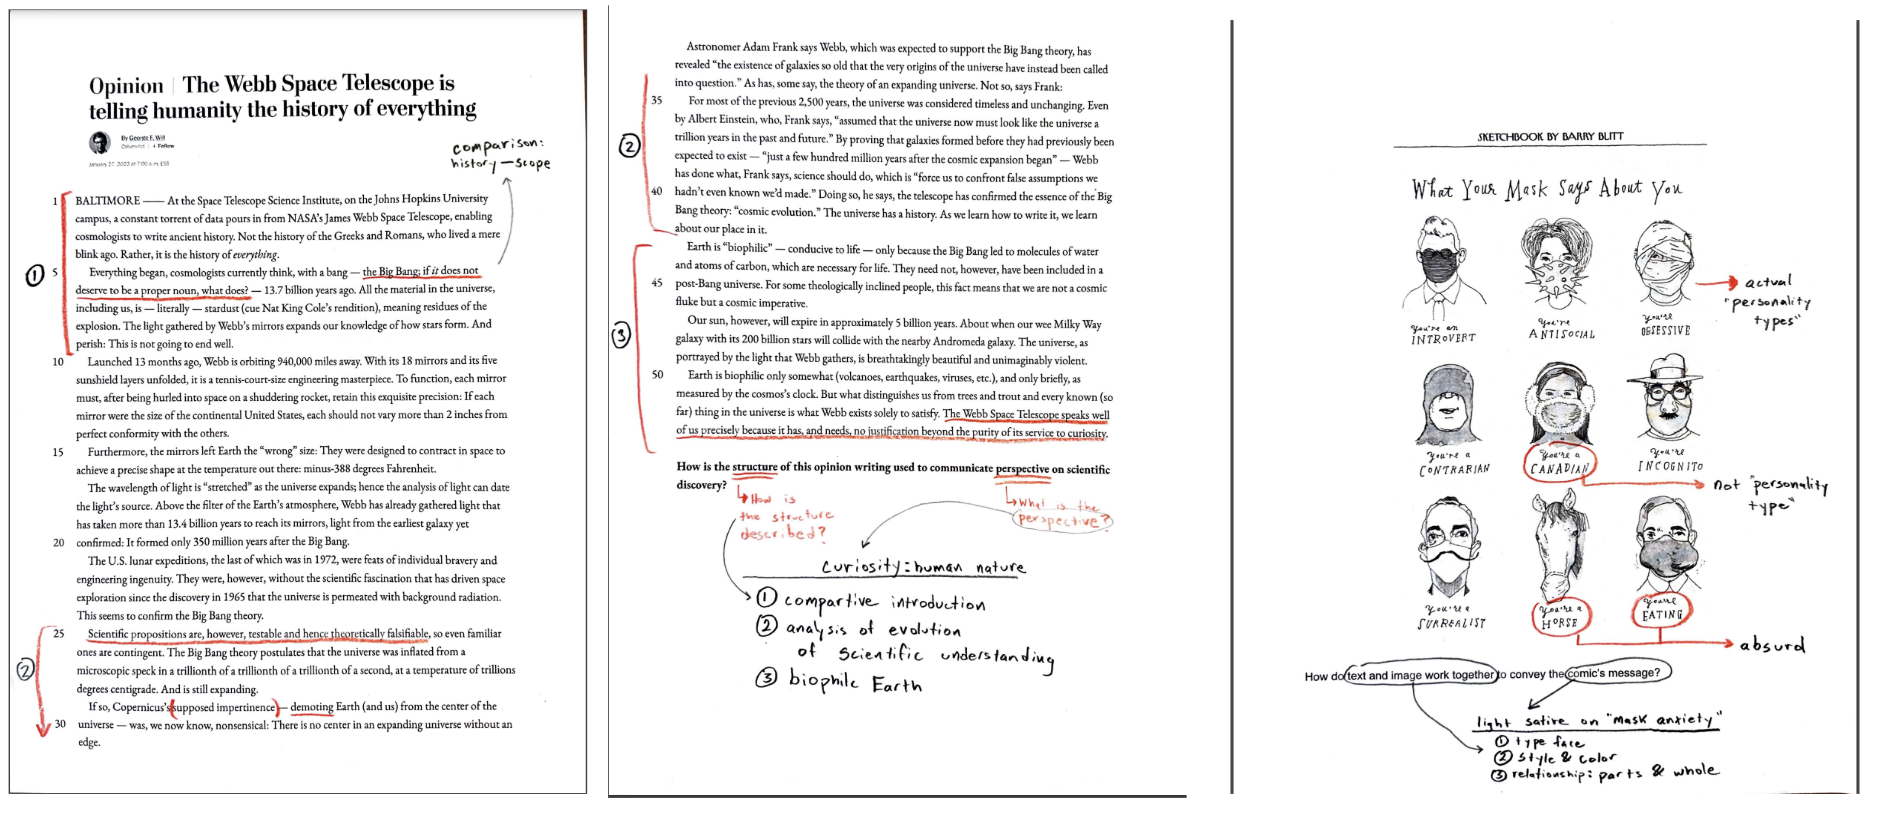 Opinion | The Webb Space Telescope is
telling humanity the history of everything
By George F. Will
Columnist | + Follow
January 27, 2023 at 7:00 a.m. EST
comparison:
history — scope
1 BALTIMORE —— At the Space Telescope Science Institute, on the Johns Hopkins University
campus, a constant torrent of data pours in from NASA's James Webb Space Telescope, enabling
cosmologists to write ancient history. Not the history of the Greeks and Romans, who lived a mere
blink ago. Rather, it is the history of everything.
①
5 Everything began, cosmologists currently think, with a bang — the Big Bang; if it does not
deserve to be a proper noun, what does? — 13.7 billion years ago. All the material in the universe,
including us, is — literally — stardust (cue Nat King Cole's rendition), meaning residues of the
explosion. The light gathered by Webb's mirrors expands our knowledge of how stars form. And
perish: This is not going to end well.
10 Launched 13 months ago, Webb is orbiting 940,000 miles away. With its 18 mirrors and its five
sunshield layers unfolded, it is a tennis-court-size engineering masterpiece. To function, each mirror
must, after being hurled into space on a shuddering rocket, retain this exquisite precision: If each
mirror were the size of the continental United States, each should not vary more than 2 inches from
perfect conformity with the others.
15 Furthermore, the mirrors left Earth the "wrong" size: They were designed to contract in space to
achieve a precise shape at the temperature out there: minus-388 degrees Fahrenheit.
The wavelength of light is "stretched" as the universe expands; hence the analysis of light can date
the light's source. Above the filter of the Earth's atmosphere, Webb has already gathered light that
has taken more than 13.4 billion years to reach its mirrors, light from the earliest galaxy yet
20 confirmed: It formed only 350 million years after the Big Bang.
The U.S. lunar expeditions, the last of which was in 1972, were feats of individual bravery and
engineering ingenuity. They were, however, without the scientific fascination that has driven space
exploration since the discovery in 1965 that the universe is permeated with background radiation.
This seems to confirm the Big Bang theory.
25 Scientific propositions are, however, testable and hence theoretically falsifiable, so even familiar
ones are contingent. The Big Bang theory postulates that the universe was inflated from a
②
microscopic speck in a trillionth of a trillionth of a trillionth of a second, at a temperature of trillions
degrees centigrade. And is still expanding.
If so, Copernicus's supposed impertinence — demoting Earth (and us) from the center of the
30 universe — was, we now know, nonsensical: There is no center in an expanding universe without an
edge.
Astronomer Adam Frank says Webb, which was expected to support the Big Bang theory, has
revealed "the existence of galaxies so old that the very origins of the universe have instead been called
into question." As has, some say, the theory of an expanding universe. Not so, says Frank:
35 For most of the previous 2,500 years, the universe was considered timeless and unchanging. Even
by Albert Einstein, who, Frank says, "assumed that the universe now must look like the universe a
trillion years in the past and future." By proving that galaxies formed before they had previously been
②
expected to exist — "just a few hundred million years after the cosmic expansion began" — Webb
has done what, Frank says, science should do, which is "force us to confront false assumptions we
40 hadn't even known we'd made." Doing so, he says, the telescope has confirmed the essence of the Big
Bang theory: "cosmic evolution." The universe has a history. As we learn how to write it, we learn
about our place in it.
Earth is "biophilic" — conducive to life — only because the Big Bang led to molecules of water
and atoms of carbon, which are necessary for life. They need not, however, have been included in a
45 post-Bang universe. For some theologically inclined people, this fact means that we are not a cosmic
fluke but a cosmic imperative.
Our sun, however, will expire in approximately 5 billion years. About when our wee Milky Way
③
galaxy with its 200 billion stars will collide with the nearby Andromeda galaxy. The universe, as
portrayed by the light that Webb gathers, is breathtakingly beautiful and unimaginably violent.
50 Earth is biophilic only somewhat (volcanoes, earthquakes, viruses, etc.), and only briefly, as
measured by the cosmos's clock. But what distinguishes us from trees and trout and every known (so
far) thing in the universe is what Webb exists solely to satisfy. The Webb Space Telescope speaks well
of us precisely because it has, and needs, no justification beyond the purity of its service to curiosity.
How is the structure of this opinion writing used to communicate perspective on scientific
discovery?
How is
the structure
described?
What is the
perspective?
curiosity: human nature
① compartive introduction
② analysis of evolution
of scientific understanding
③ biophile Earth
SKETCHBOOK BY BARRY BLITT
What Your Mask Says About You
You're an
INTROVERT
You're
ANTISOCIAL
You're
OBSESSIVE
actual
"personality
types"
You're a
CONTRARIAN
You're a
CANADIAN
You're
INCOGNITO
not "personality
type"
You're a
SURREALIST
You're a
HORSE
You're
EATING
absurd
How do text and image work together to convey the comic's message?
light satire on "mask anxiety"
① type face
② style & color
③ relationship: parts & whole